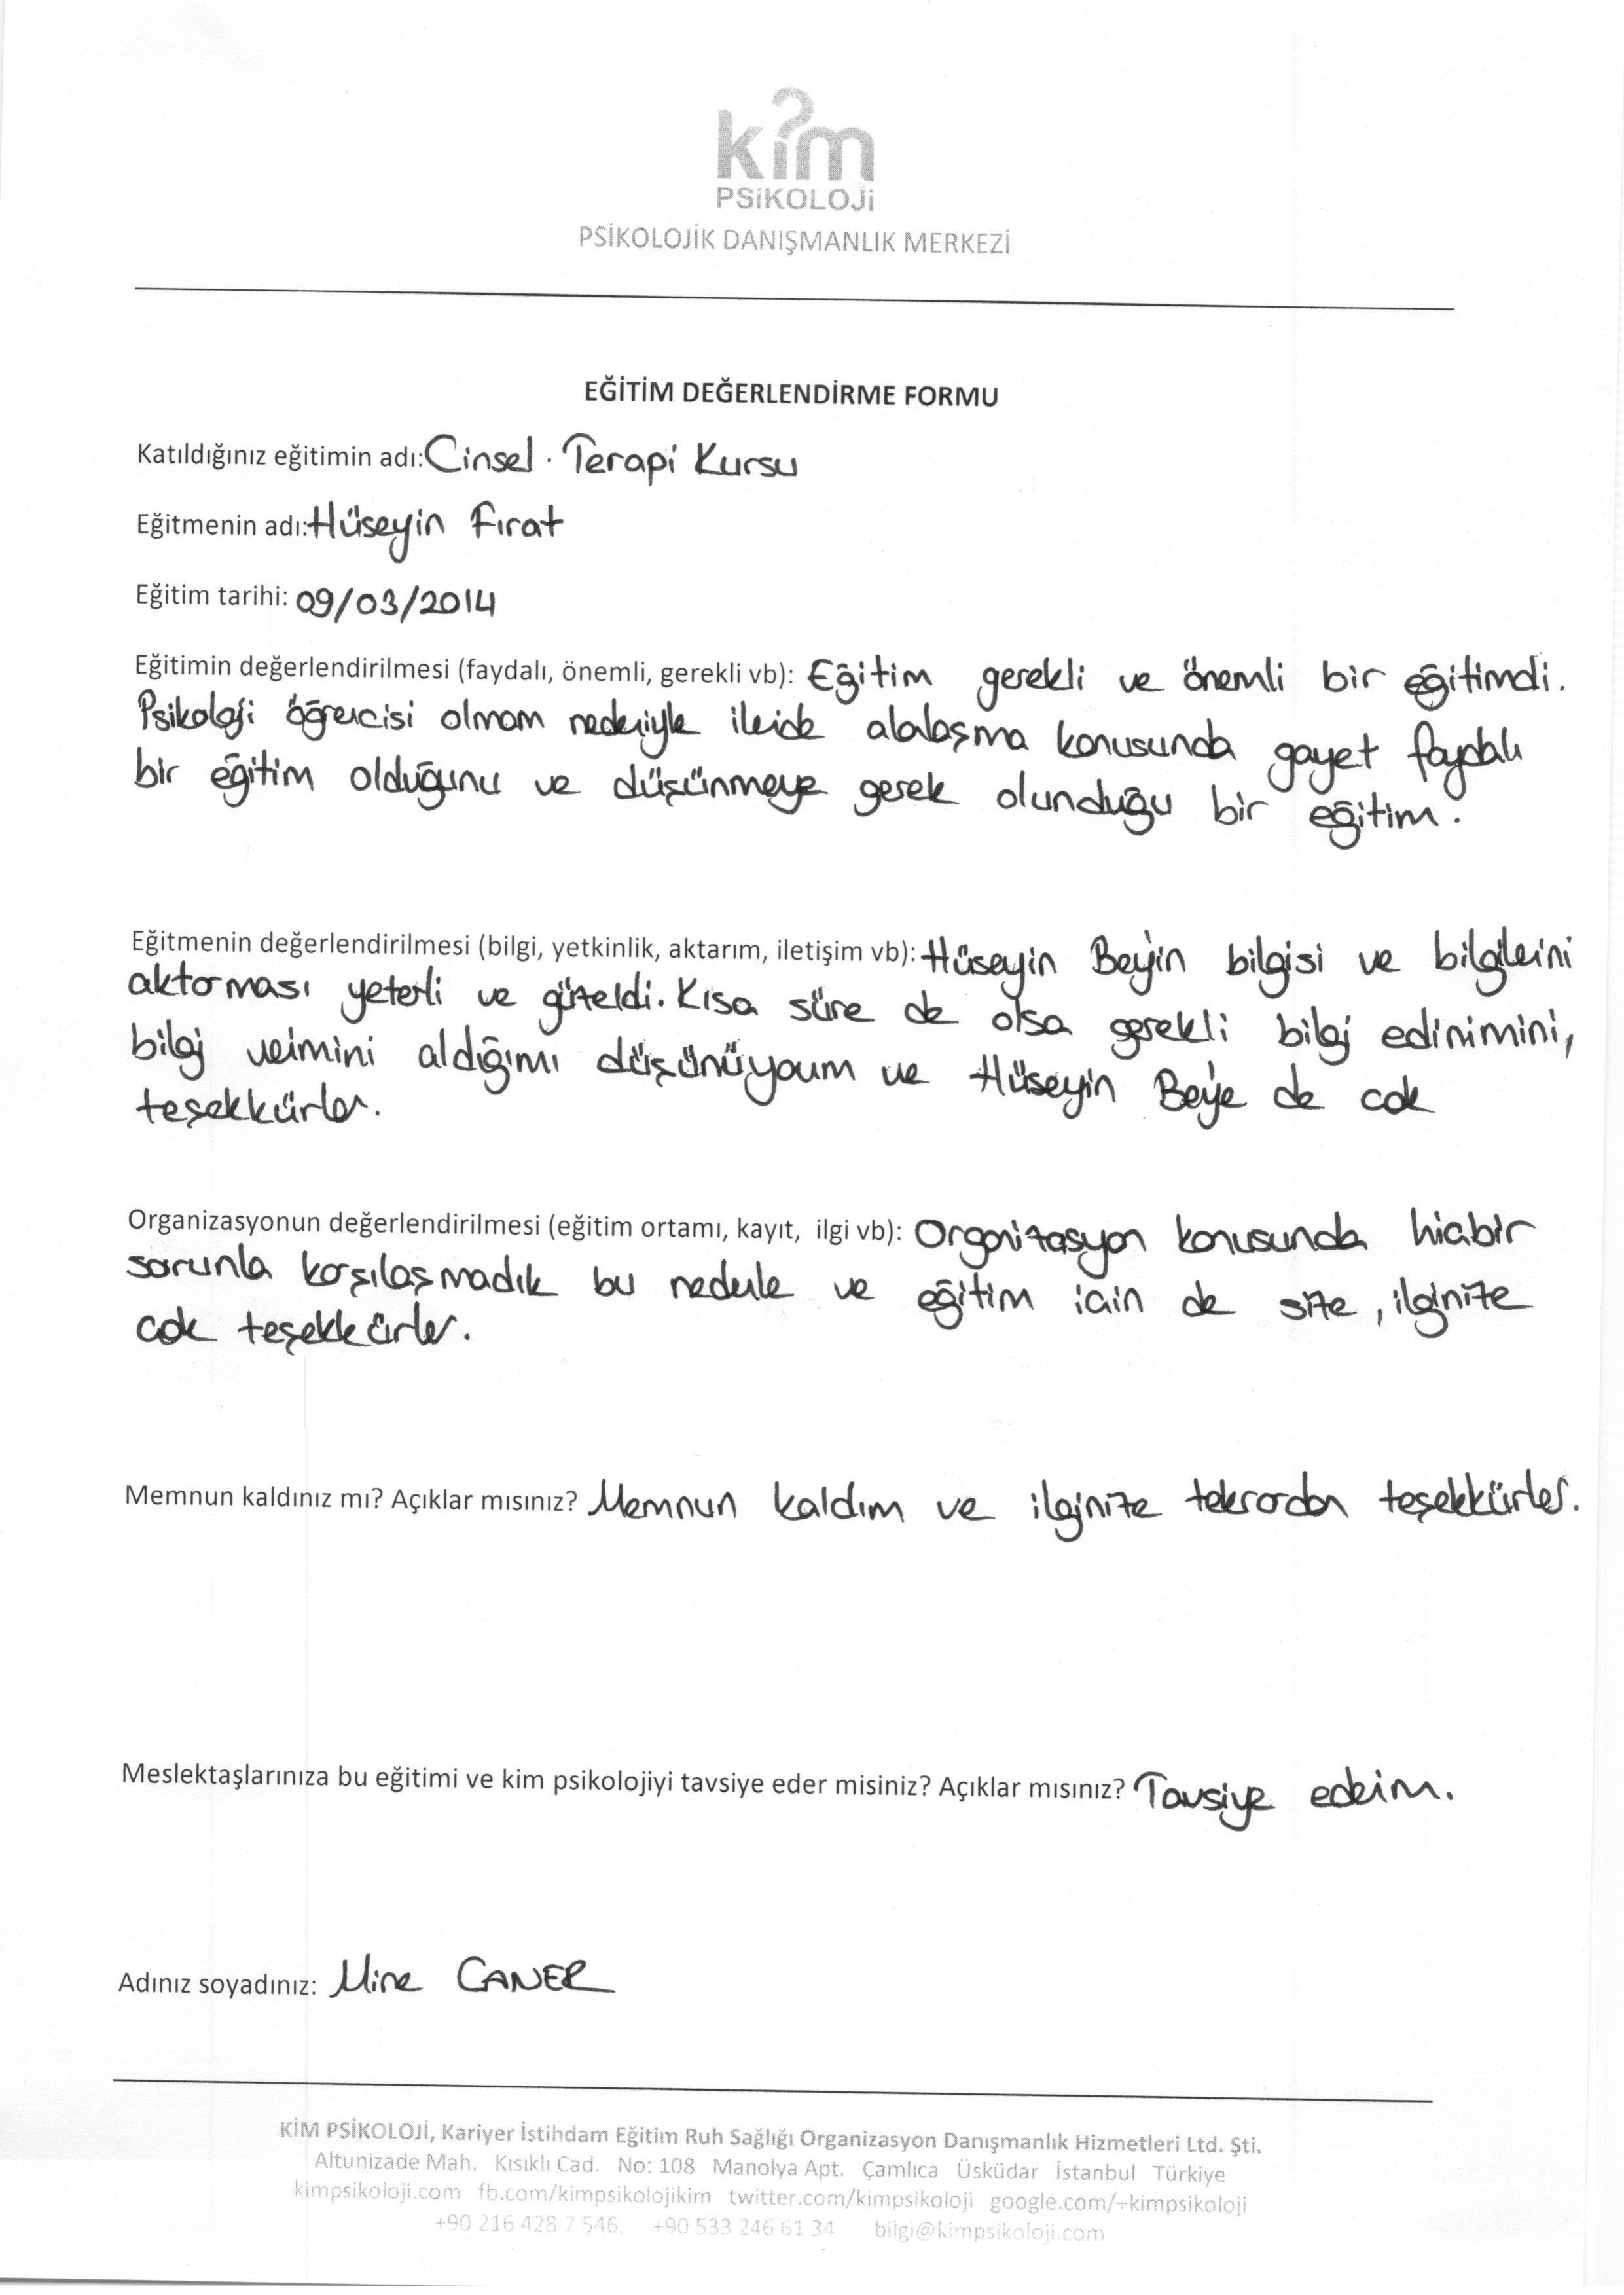 kim
PSiKOLOJi
PSİKOLOJİK DANIŞMANLIK MERKEZİ
EĞİTİM DEĞERLENDİRME FORMU
Katıldığınız eğitimin adı: Cinsel. Terapi Kursu
Eğitmenin adı: Hüseyin Fırat
Eğitim tarihi: 09/03/2014
Eğitimin değerlendirilmesi (faydalı, önemli, gerekli vb): Eğitim gerekli ve önemli bir eğitimdi.
Psikoloji öğrencisi olmam nedeniyle ileride alalaşma konusunda gayet faydalı
bir eğitim olduğunu ve düşünmeye gerek olunduğu bir eğitim.
Eğitmenin değerlendirilmesi (bilgi, yetkinlik, aktarım, iletişim vb): Hüseyin Bey'in bilgisi ve bilgilerini
aktarması yeterli ve güzeldi. Kısa süre de olsa gerekli bilgi edinimini,
bilgi verimini aldığımı düşünüyorum ve Hüseyin Bey'e de cok
teşekkürler.
Organizasyonun değerlendirilmesi (eğitim ortamı, kayıt, ilgi vb): Organizasyon konusunda hicbir
sorunla karşılaşmadık bu nedenle ve eğitim icin de size, ilginize
cok teşekkürler.
Memnun kaldınız mı? Açıklar mısınız? Memnun kaldım ve ilginize tekrardan teşekkürler.
Meslektaşlarınıza bu eğitimi ve kim psikolojiyi tavsiye eder misiniz? Açıklar mısınız? Tavsiye ederim.
Adınız soyadınız: Mine CANER
KİM PSİKOLOJİ, Kariyer İstihdam Eğitim Ruh Sağlığı Organizasyon Danışmanlık Hizmetleri Ltd. Şti.
Altunizade Mah. Kısıklı Cad. No: 108 Manolya Apt. Çamlıca Üsküdar İstanbul Türkiye
kimpsikoloji.com fb.com/kimpsikolojikim twitter.com/kimpsikoloji google.com/+kimpsikoloji
+90 216 428 7 546, +90 533 246 61 34 bilgi@kimpsikoloji.com